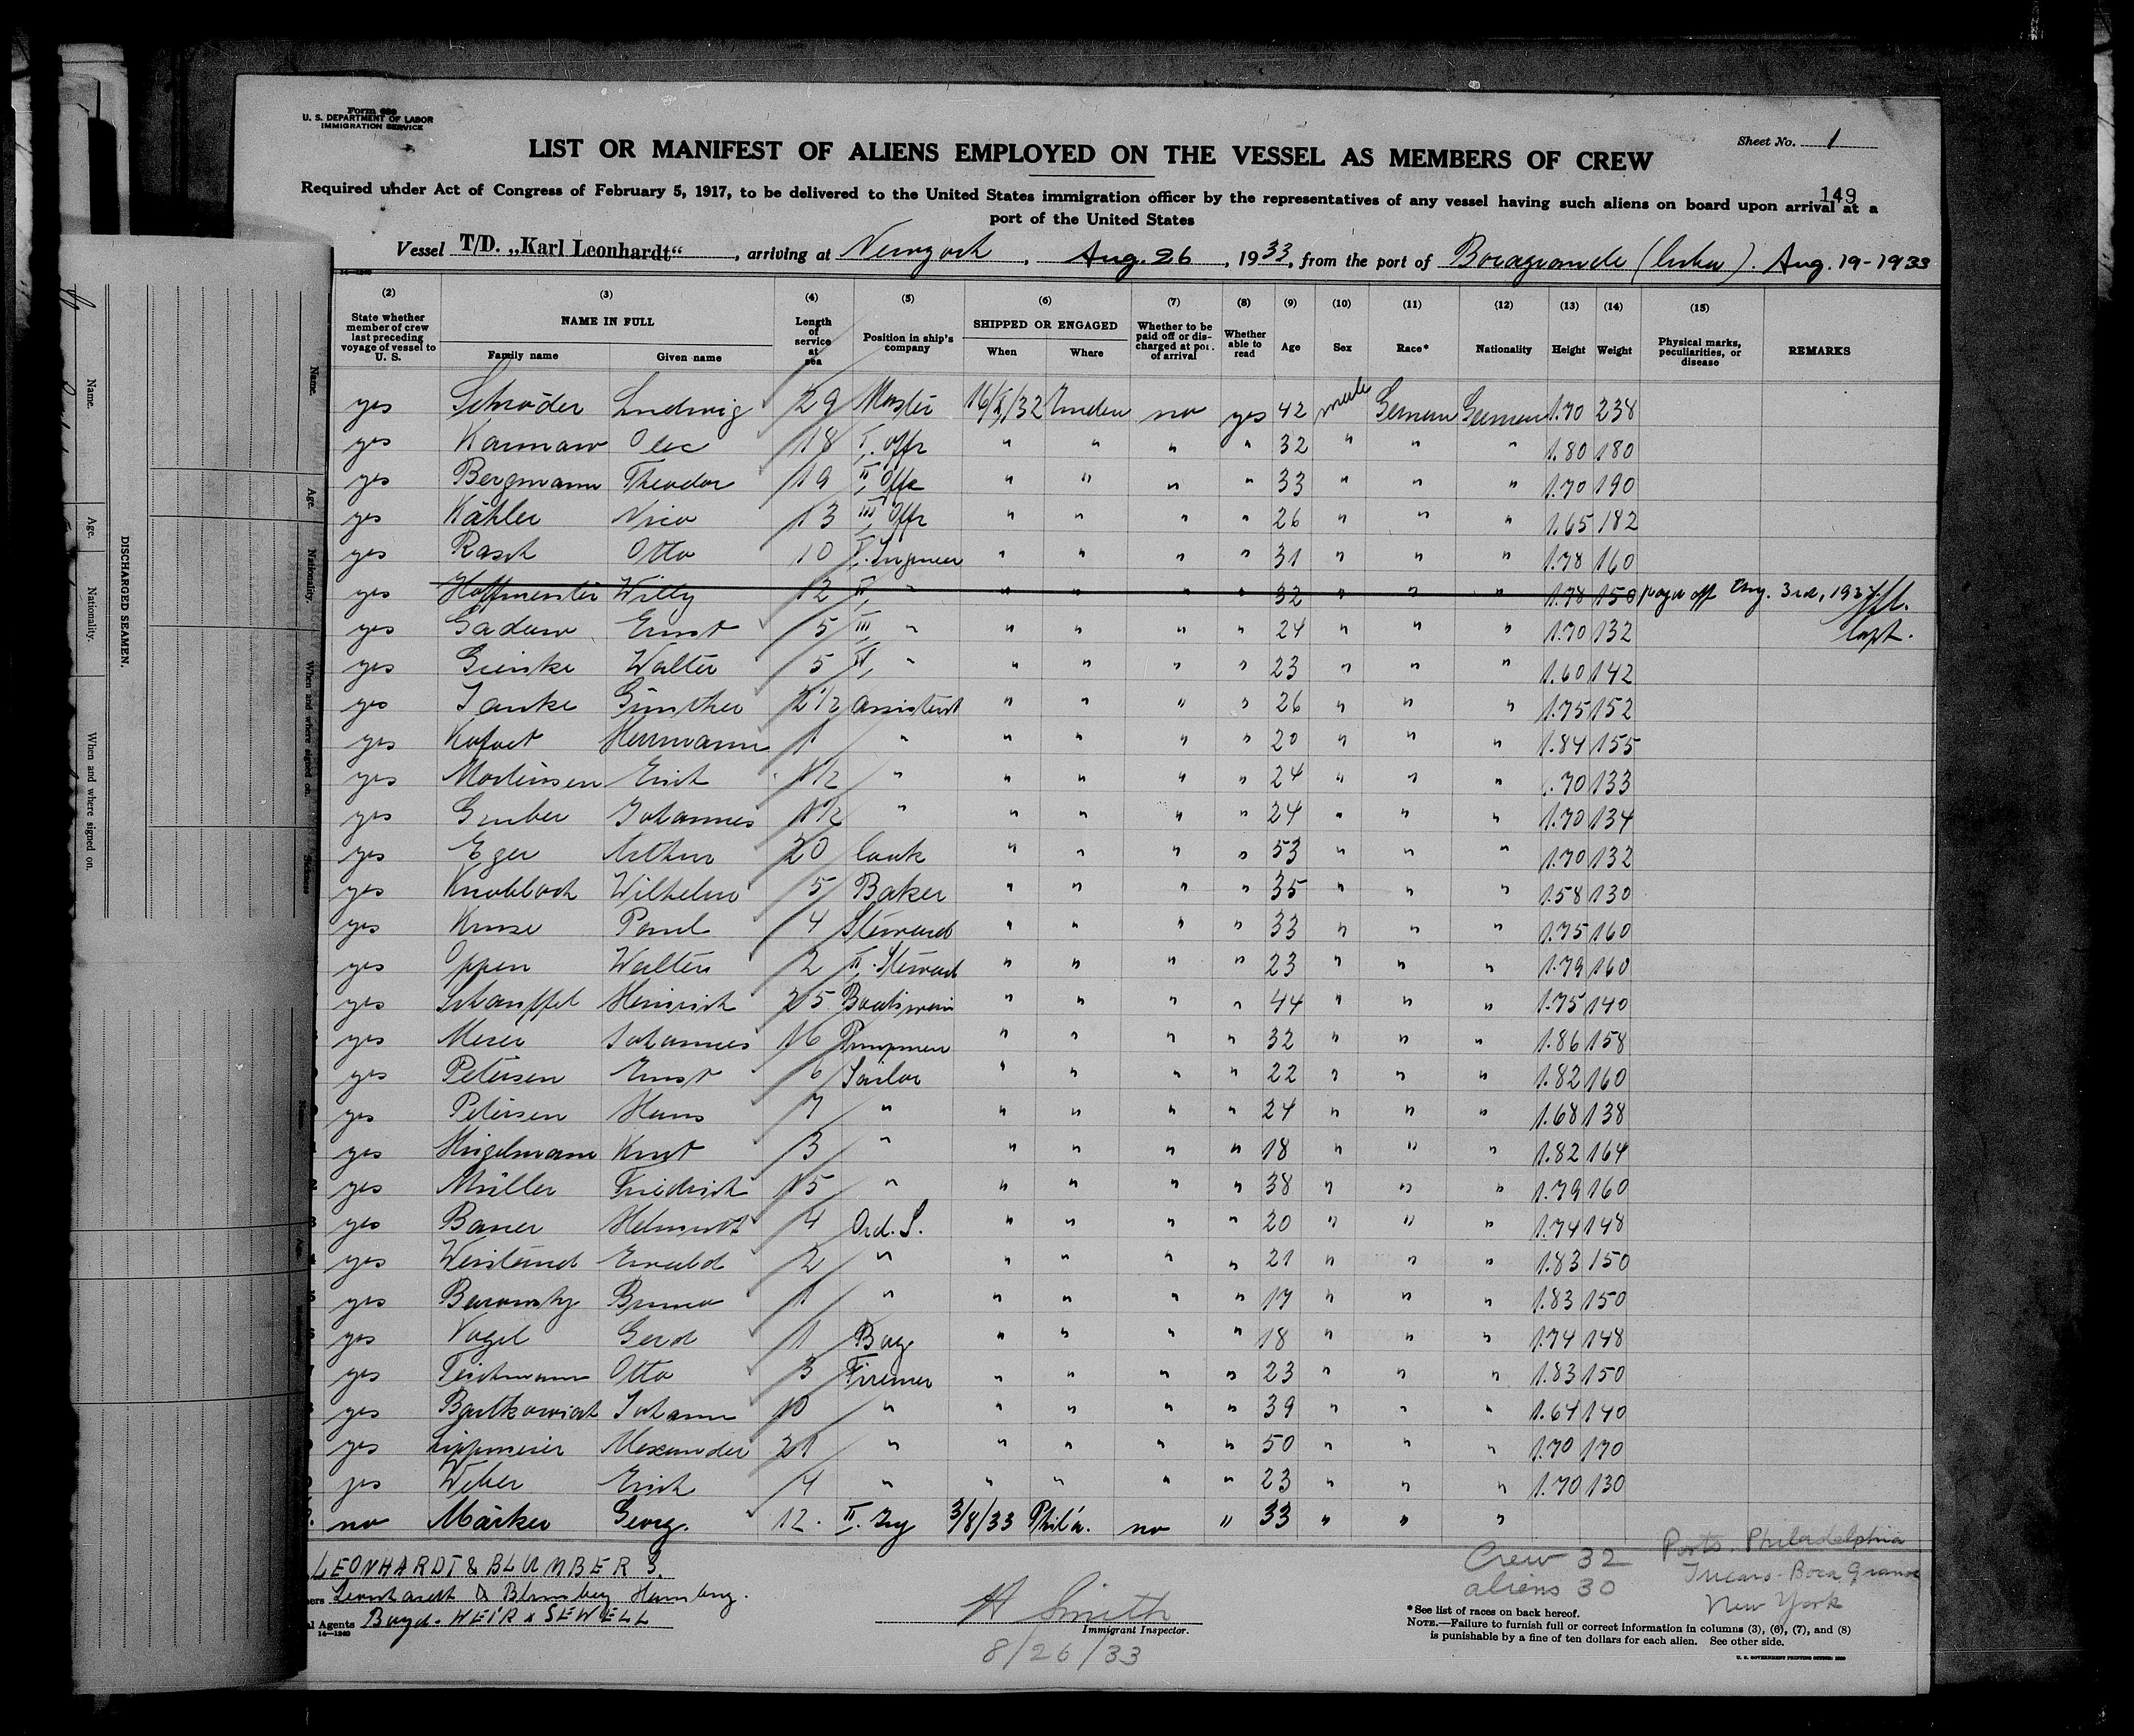 Form 689
U. S. DEPARTMENT OF LABOR
IMMIGRATION SERVICE
Sheet No. 1
LIST OR MANIFEST OF ALIENS EMPLOYED ON THE VESSEL AS MEMBERS OF CREW
149
Required under Act of Congress of February 5, 1917, to be delivered to the United States immigration officer by the representatives of any vessel having such aliens on board upon arrival at a
port of the United States
Vessel T/D. „Karl Leonhardt“, arriving at Newyork, Aug. 26, 1933, from the port of Bocagrande (Cuba). Aug. 19-1933
14—1240
(2) (3) (4) (5) (6) (7) (8) (9) (10) (11) (12) (13) (14) (15)
State whether member of crew last preceding voyage of vessel to U. S. NAME IN FULL Family name Given name Length of service at sea Position in ship's company SHIPPED OR ENGAGED When Where Whether to be paid off or discharged at port of arrival Whether able to read Age Sex Race* Nationality Height Weight Physical marks, peculiarities, or disease REMARKS
yes Schröder Ludwig 29 Master 16/X/32 Emden no yes 42 male German German 1.70 238
yes Karmaw 18 I. Offr " " " " 32 " " " 1.80 180
yes Bergmann Theodor 19 II. Offr " " " " 33 " " " 1.70 190
yes Kähler Nico 13 III. Offr " " " " 26 " " " 1.65 182
yes Rasch Otto 10 I. Ingineer " " " " 31 " " " 1.78 160
yes Hoffmeister Willy 12 II. " " " " " 32 " " " 1.78 150 payd off Aug. 3rd, 1933
yes Gadow Ernst 5 III. " " " " " 24 " " " 1.70 132 Capt.
yes Gienke Walter 5 " " " " " 23 " " " 1.60 142
yes Janke Günther 2 1/2 assistent " " " " 26 " " " 1.75 152
yes Kofoet Herrmann 1 " " " " " 20 " " " 1.84 155
yes Mortensen Erich 1 1/2 " " " " " 24 " " " .70 133
yes Gruber Johannes 1 1/2 " " " " " 24 " " " 1.70 134
yes Eger Arthur 20 Cook " " " " 53 " " " 1.70 132
yes Knobloch Wilhelm 5 Baker " " " " 35 " " " 1.58 130
yes Kruse Paul 4 Steward " " " " 33 " " " 1.75 160
yes Oppen Walter 2 II. Steward " " " " 23 " " " 1.79 160
yes Schauffel Heinrich 25 Boatswain " " " " 44 " " " 1.75 140
yes Meier Johannes 16 Pumpmen " " " " 32 " " " 1.86 158
yes Petersen Ernst 6 Sailor " " " " 22 " " " 1.82 160
yes Petersen Hans 7 " " " " " 24 " " " 1.68 138
yes Hingelmann Kurt 3 " " " " " 18 " " " 1.82 164
yes Müller Friedrich 15 " " " " " 38 " " " 1.79 160
yes Bauer Helmuth 4 Ord. S. " " " " 20 " " " 1.74 148
yes Ewald 2 " " " " " 21 " " " 1.83 150
yes Barowsky Bruno 1 " " " " " 17 " " " 1.83 150
yes Vogel Gerd 1 Boy " " " " 18 " " " 1.74 148
yes Teichmann Otto 3 Firemen " " " " 23 " " " 1.83 150
yes Bartkowiak Johann 10 " " " " " 39 " " " 1.64 140
yes Lippmeier Alexander 21 " " " " " 50 " " " 1.70 170
yes Weber Erich 4 " " " " " 23 " " " 1.70 130
no Märker Georg. 12. II. Ing 3/8/33 Phil'a. no " 33 " " "
LEONHARDT & BLUMBERG.
ners Leonhardt & Blumberg Hamburg.
al Agents Boyd-WEIR & SEWELL
14—1240
H Smith
Immigrant Inspector.
8/26/33
Crew 32
aliens 30
Ports. Philadelphia
Boca Grande
New York
*See list of races on back hereof.
NOTE.—Failure to furnish full or correct information in columns (3), (6), (7), and (8)
is punishable by a fine of ten dollars for each alien. See other side.
U. S. GOVERNMENT PRINTING OFFICE
DISCHARGED SEAMEN.
Name.
Age.
Nationality.
When and where signed on.
Name.
Age.
Nationality.
When and where signed on.